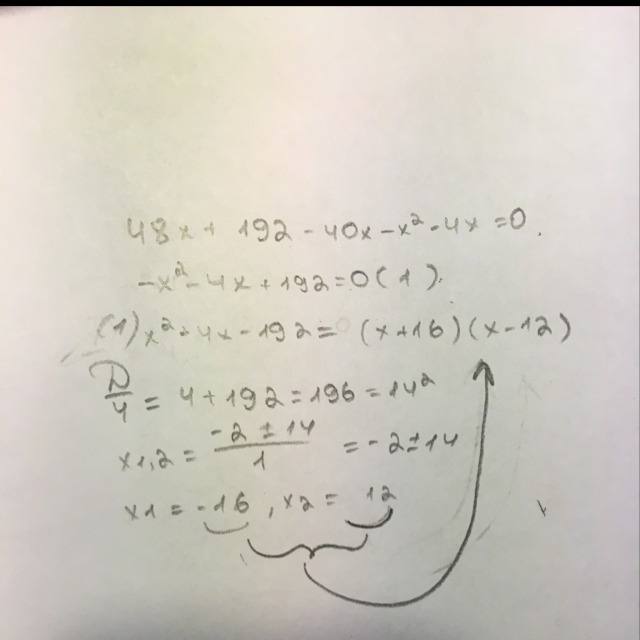 48x + 192 - 40x - x² - 4x = 0.
-x² - 4x + 192 = 0 (1).
(1) x² - 4x - 192 = (x+16)(x-12)
D/4 = 4 + 192 = 196 = 14²
x1,2 = (-2 ± 14)/1 = -2 ± 14
x1 = -16, x2 = 12